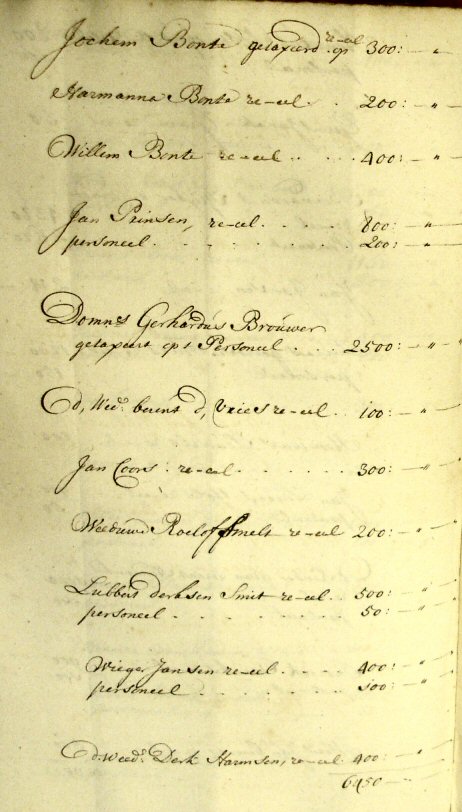 Jochem Bonte getaxeerd re-eel op 300:—"
Harmanna Bonte re-eel . . 200:—"—
Willem Bonte re-eel . . . . 400:—"—
Jan Prinsen, re-eel . . . . 800:—"—
personeel . . . . . 200:—"—
Domnes Gerhardus Brouwer
getaxeert op t Personeel . . 2500:—"—"
d, Wed: berent d, Vries re-eel . . 100:—"
Jan Coors: re-eel . . . . . 300:—"
Weeduwe Roelof Smelt re-eel 200:—"—
Lubbert derksen Smit re-eel . 500:—"
personeel . . . . . 50:—"
Wieger Jansen re-eel . . . 400:—"
personeel . . . . . 100:—"
d: weed: Derk Harmsen, re-eel 400:—"
6450—"